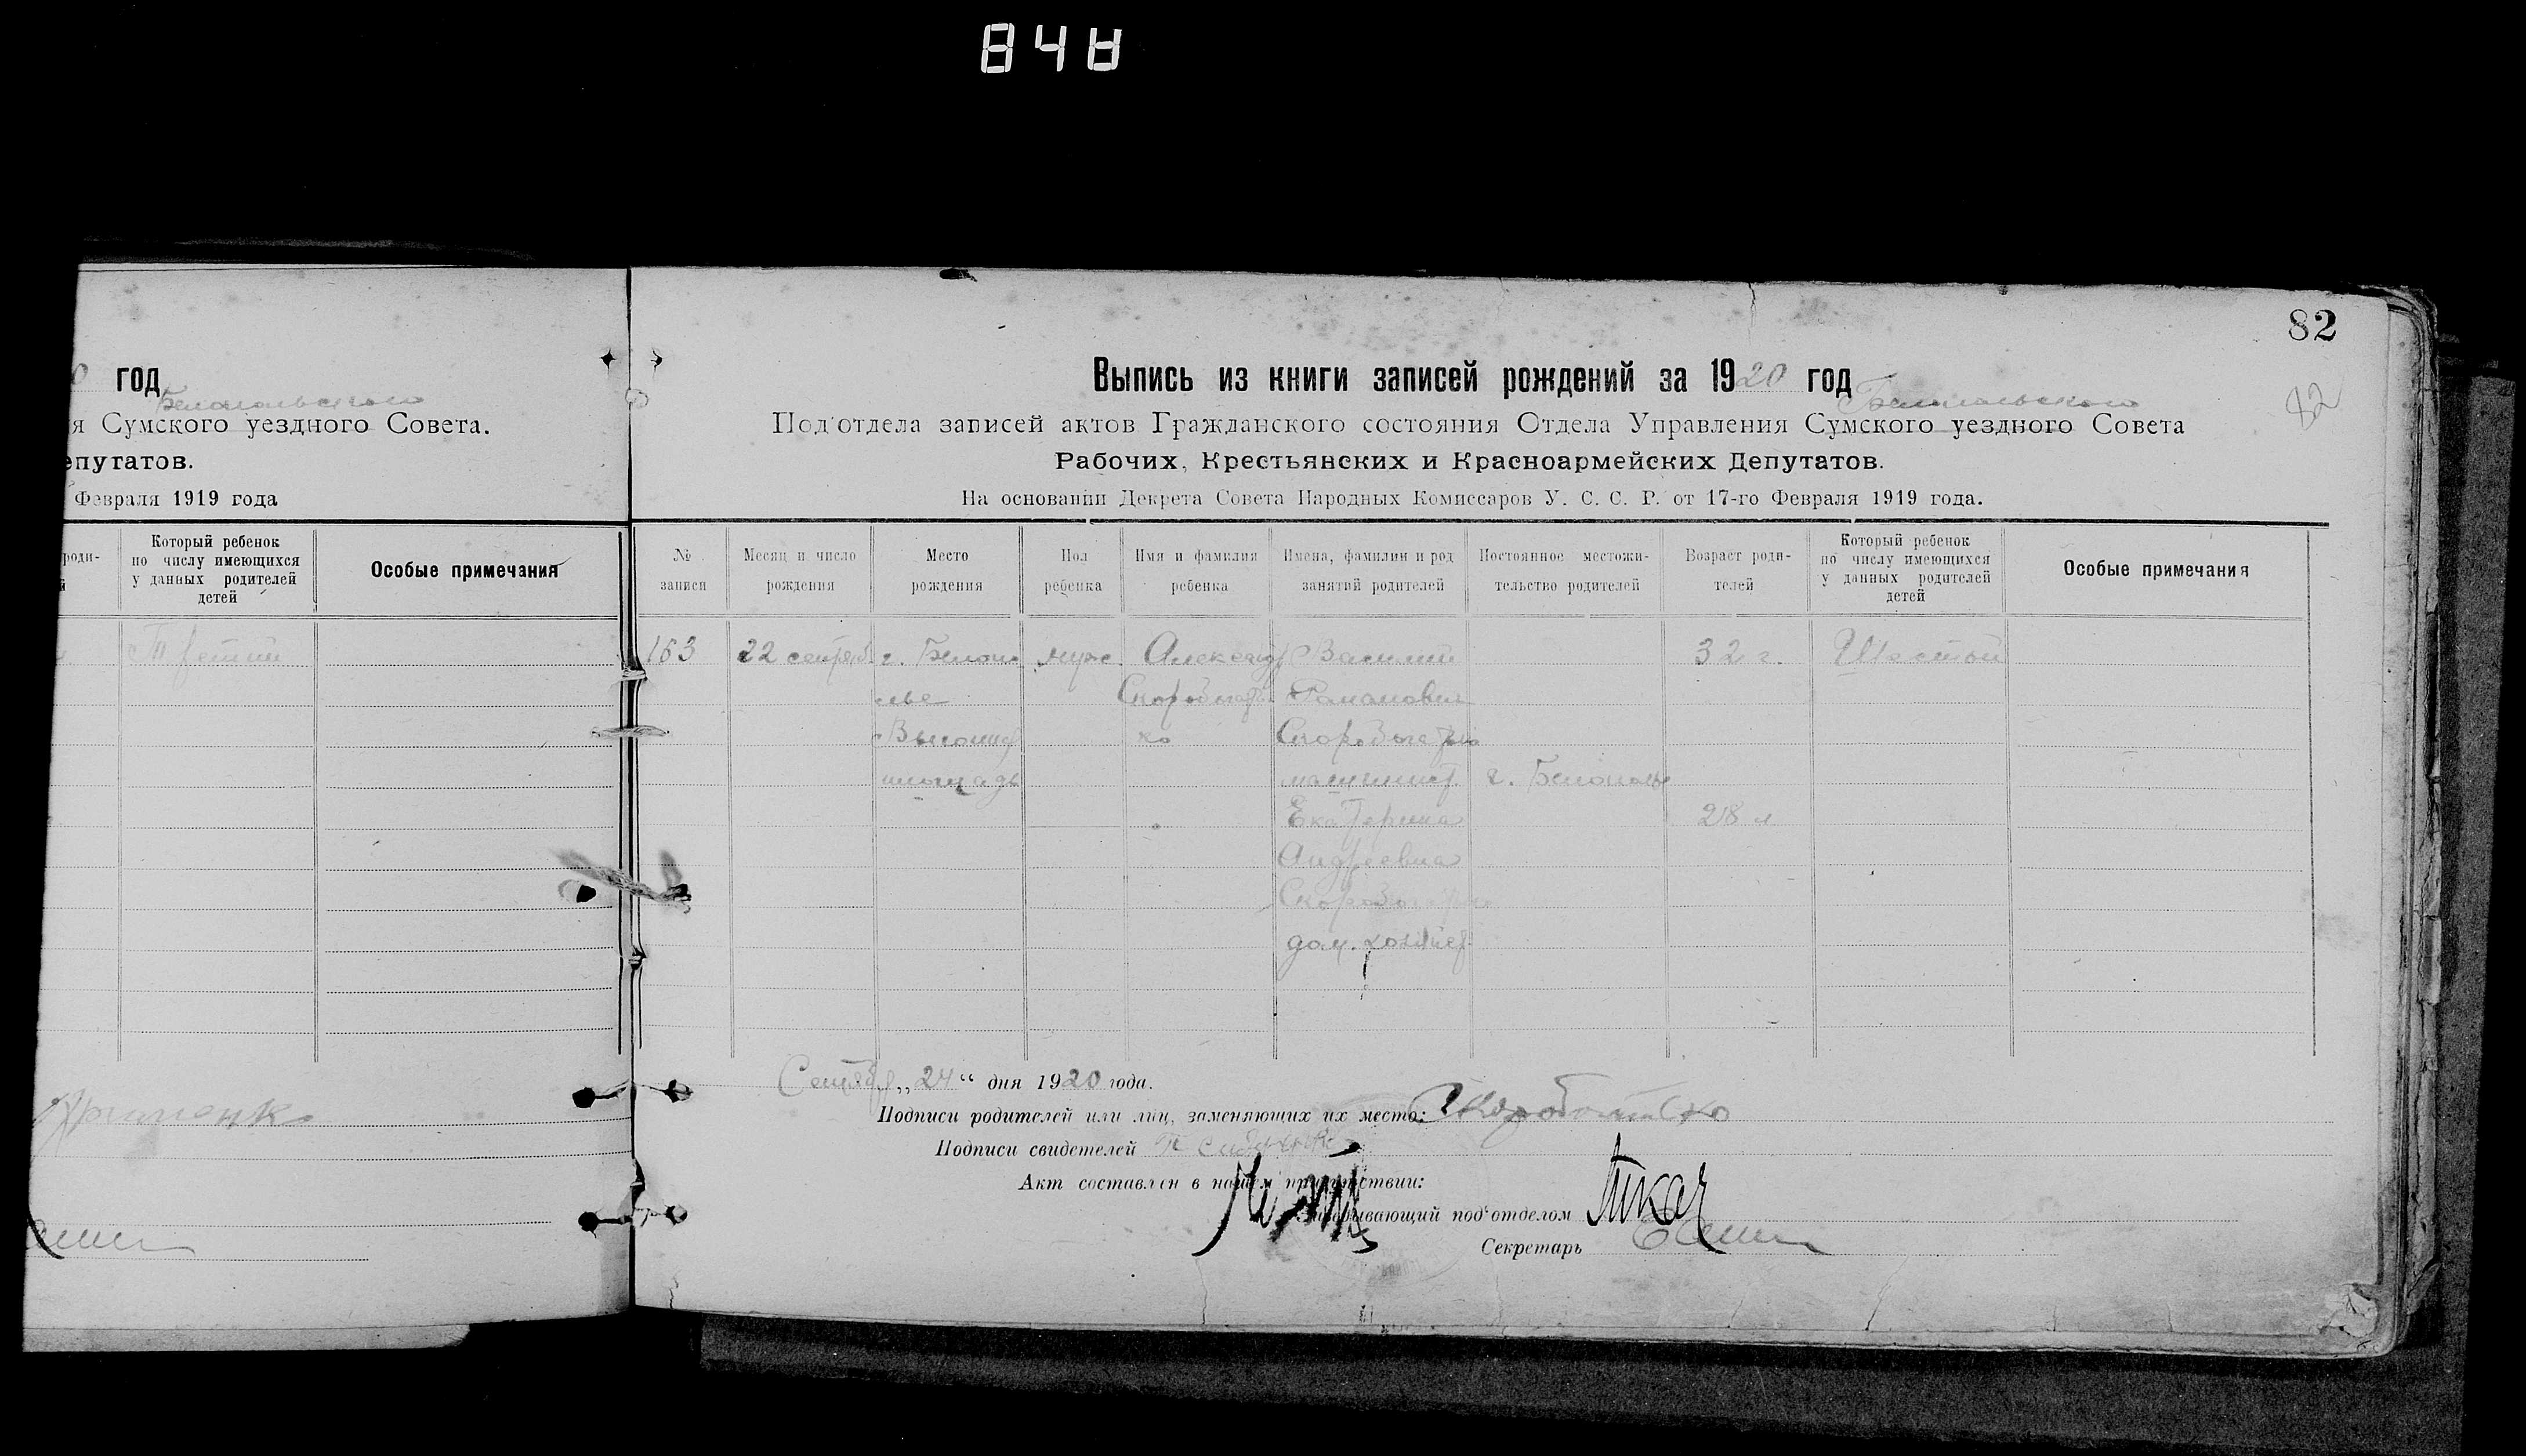 848
год
Белопольского
я Сумского уездного Совета.
епутатов.
Февраля 1919 года
роди-
й
Который ребенок
по числу имеющихся
у данных родителей
детей
Особые примечания
Третий
82
82
Выпись из книги записей рождений за 1920 год
Белопольского
Под'отдела записей актов Гражданского состояния Отдела Управления Сумского уездного Совета
Рабочих, Крестьянских и Красноармейских Депутатов.
На основании Декрета Совета Народных Комиссаров У. С. С. Р. от 17-го Февраля 1919 года.
№
записи
Месяц и число
рождения
Место
рождения
Пол
ребенка
Имя и фамилия
ребенка
Имена, фамилии и род
занятий родителей
Постоянное местожи-
тельство родителей
Возраст роди-
телей
Который ребенок
по числу имеющихся
у данных родителей
детей
Особые примечания
163
22 сентяб.
г. Белопо
лье
площадь
муж.
Александр
Скоробогать
ко
Василий
Романович
Скоробогатько
машинист.
Екатерина
Андреевна
Скоробогатько
дом.
г. Белополье
32 г.
28 л
Шестой
Сентября „24“ дня 1920 года.
Подписи родителей или лиц, заменяющих их место: Скоробогатько
Подписи свидетелей
Акт составлен в нашем присутствии:
Заведывающий под'отделом Ткач
Секретарь